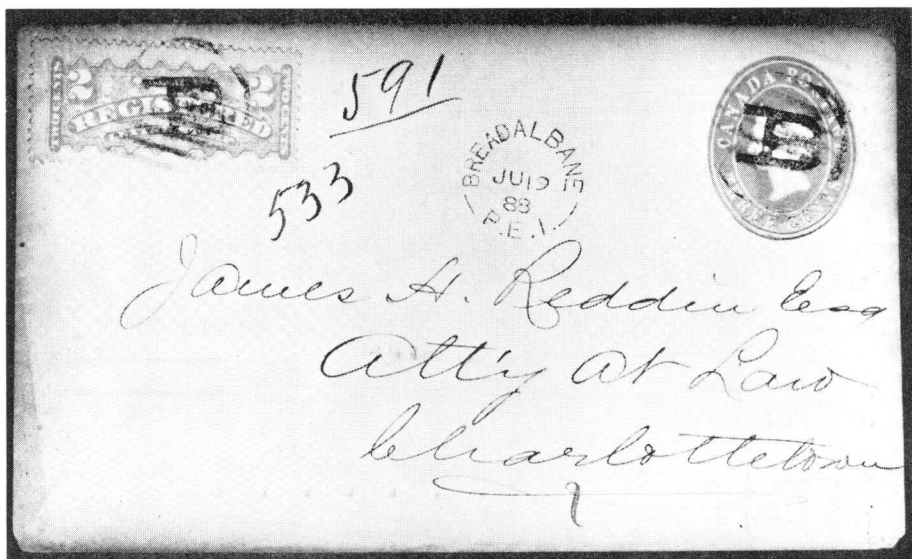 TWO CENTS 2 REGISTERED 2 TWO CENTS
R
591
533
BREADALBANE
JU 19
88
P.E.I.
CANADA POSTAGE
R
James H. Reddin Esq
Att'y at Law
Charlottetown